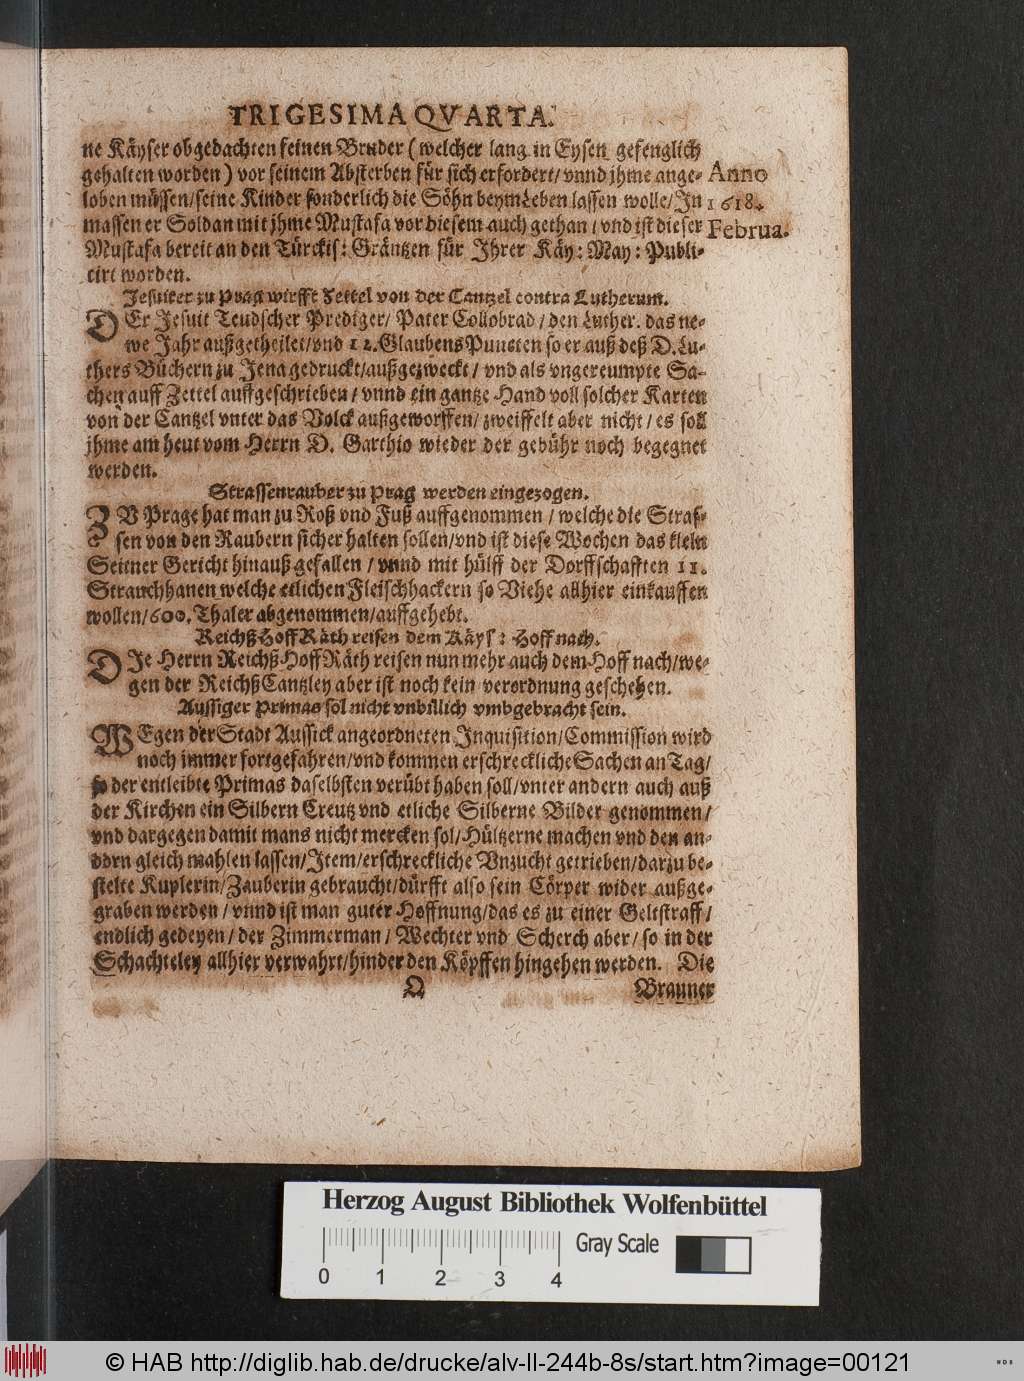 TRIGESIMA QVARTA.
ne Käyser obgedachten seinen Bruder (welcher lang in Eysen gefenglich
gehalten worden) vor seinem Absterben für sich erfordert/vnnd jhme ange-
loben müssen/seine Kinder sonderlich die Söhn beym Leben lassen wolle/In
massen er Soldan mit jhme Mustafa vor diesem auch gethan/vnd ist dieser
Mustafa bereit an den Türckis: Gräntzen für Ihrer Käy: May: Publi-
cirt worden.
Anno
1618.
Februa.
Jesuiter zu Prag wirfft Zettel von der Cantzel contra Lutherum.
DEr Jesuit Teudscher Prediger/ Pater Collobrad/den Luther. das ne-
we Jahr außgetheilet/vnd 12.Glaubens Puncten so er auß deß D.Lu-
thers Büchern zu Jena gedruckt/außgezweckt/ vnd als vngereumpte Sa-
chen auff Zettel auffgeschrieben/vnnd ein gantze Hand voll solcher Karten
von der Cantzel vnter das Volck außgeworffen/zweiffelt aber nicht/es soll
jhme am heut vom Herrn D. Garthio wieder der gebühr noch begegnet
werden.
Strassenrauber zu Prag werden eingezogen.
ZV Prage hat man zu Roß vnd Fuß auffgenommen/welche die Straf-
sen von den Raubern sicher halten sollen/vnd ist diese Wochen das klein
Seitner Gericht hinauß gefallen/vnnd mit hülff der Dorffschafften 11.
Strauchhanen welche etlichen Fleischhackern so Viehe allhier einkauffen
wollen/600.Thaler abgenommen/auffgehebt.
Reichß Hoff Räth reisen dem Käys: Hoff nach.
DIe Herrn Reichß-Hoff Räth reisen nun mehr auch dem-Hoff nach/we-
gen der Reichß Cantzley aber ist noch kein verordnung geschehen.
Aussiger Primas sol nicht vnbillich vmbgebracht sein.
WEgen der Stadt Aussick angeordneten Inquisition/Commission wird
noch jmmer fortgefahren/vnd kommen erschreckliche Sachen an Tag/
so der entleibte Primas daselbsten verübt haben soll/vnter andern auch auß
der Kirchen ein Silbern Creutz vnd etliche Silberne Bilder genommen/
vnd dargegen damit mans nicht mercken sol/Hültzerne machen vnd den an-
dern gleich mahlen lassen/Item/erschreckliche Vnzucht getrieben/darzu be-
stelte Kuplerin/Zauberin gebraucht/dürfft also sein Cörper wider außge-
graben werden/vnnd ist man guter Hoffnung/das es zu einer Geltstraff/
endlich gedeyen/der Zimmerman/ Wechter vnd Scherch aber/so in der
Schachteley allhier verwahrt/hinder den Köpffen hingehen werden. Die
Q
Brauner
Herzog August Bibliothek Wolfenbüttel
0 1 2 3 4
Gray Scale
© HAB http://diglib.hab.de/drucke/alv-ll-244b-8s/start.htm?image=00121